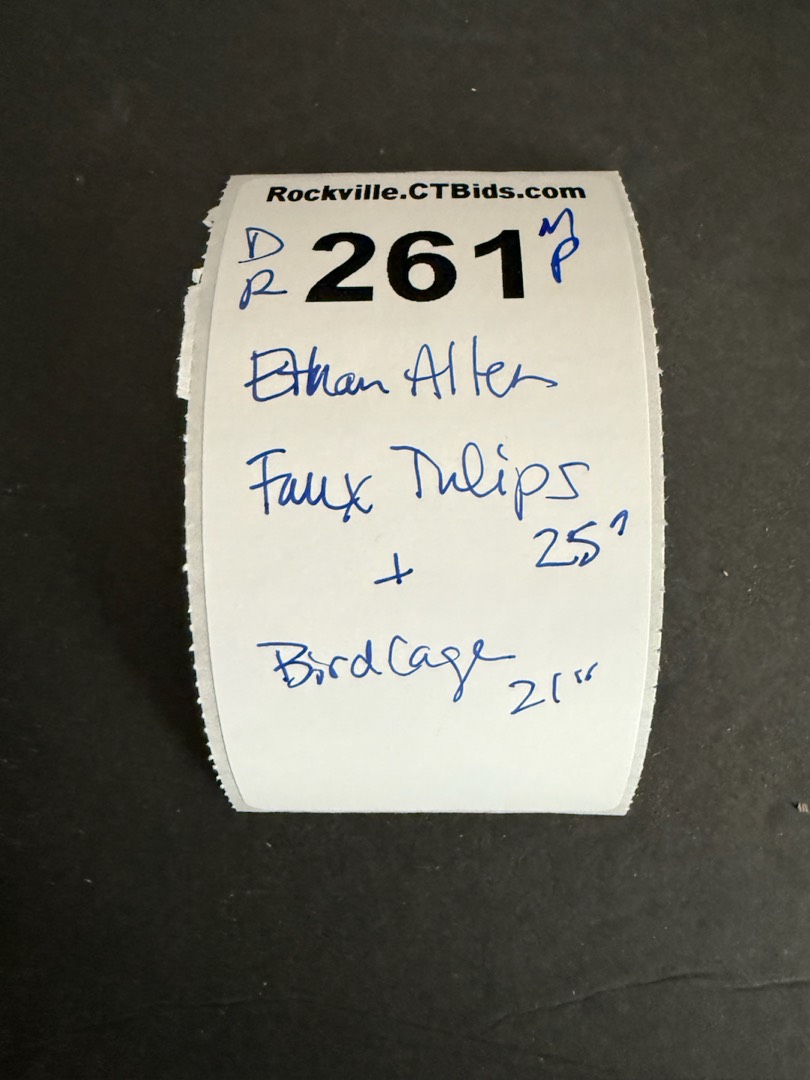 Rockville.CTBids.com
DR 261 MP
Ethan Allen
Faux Tulips
25"
+
Birdcage
21"